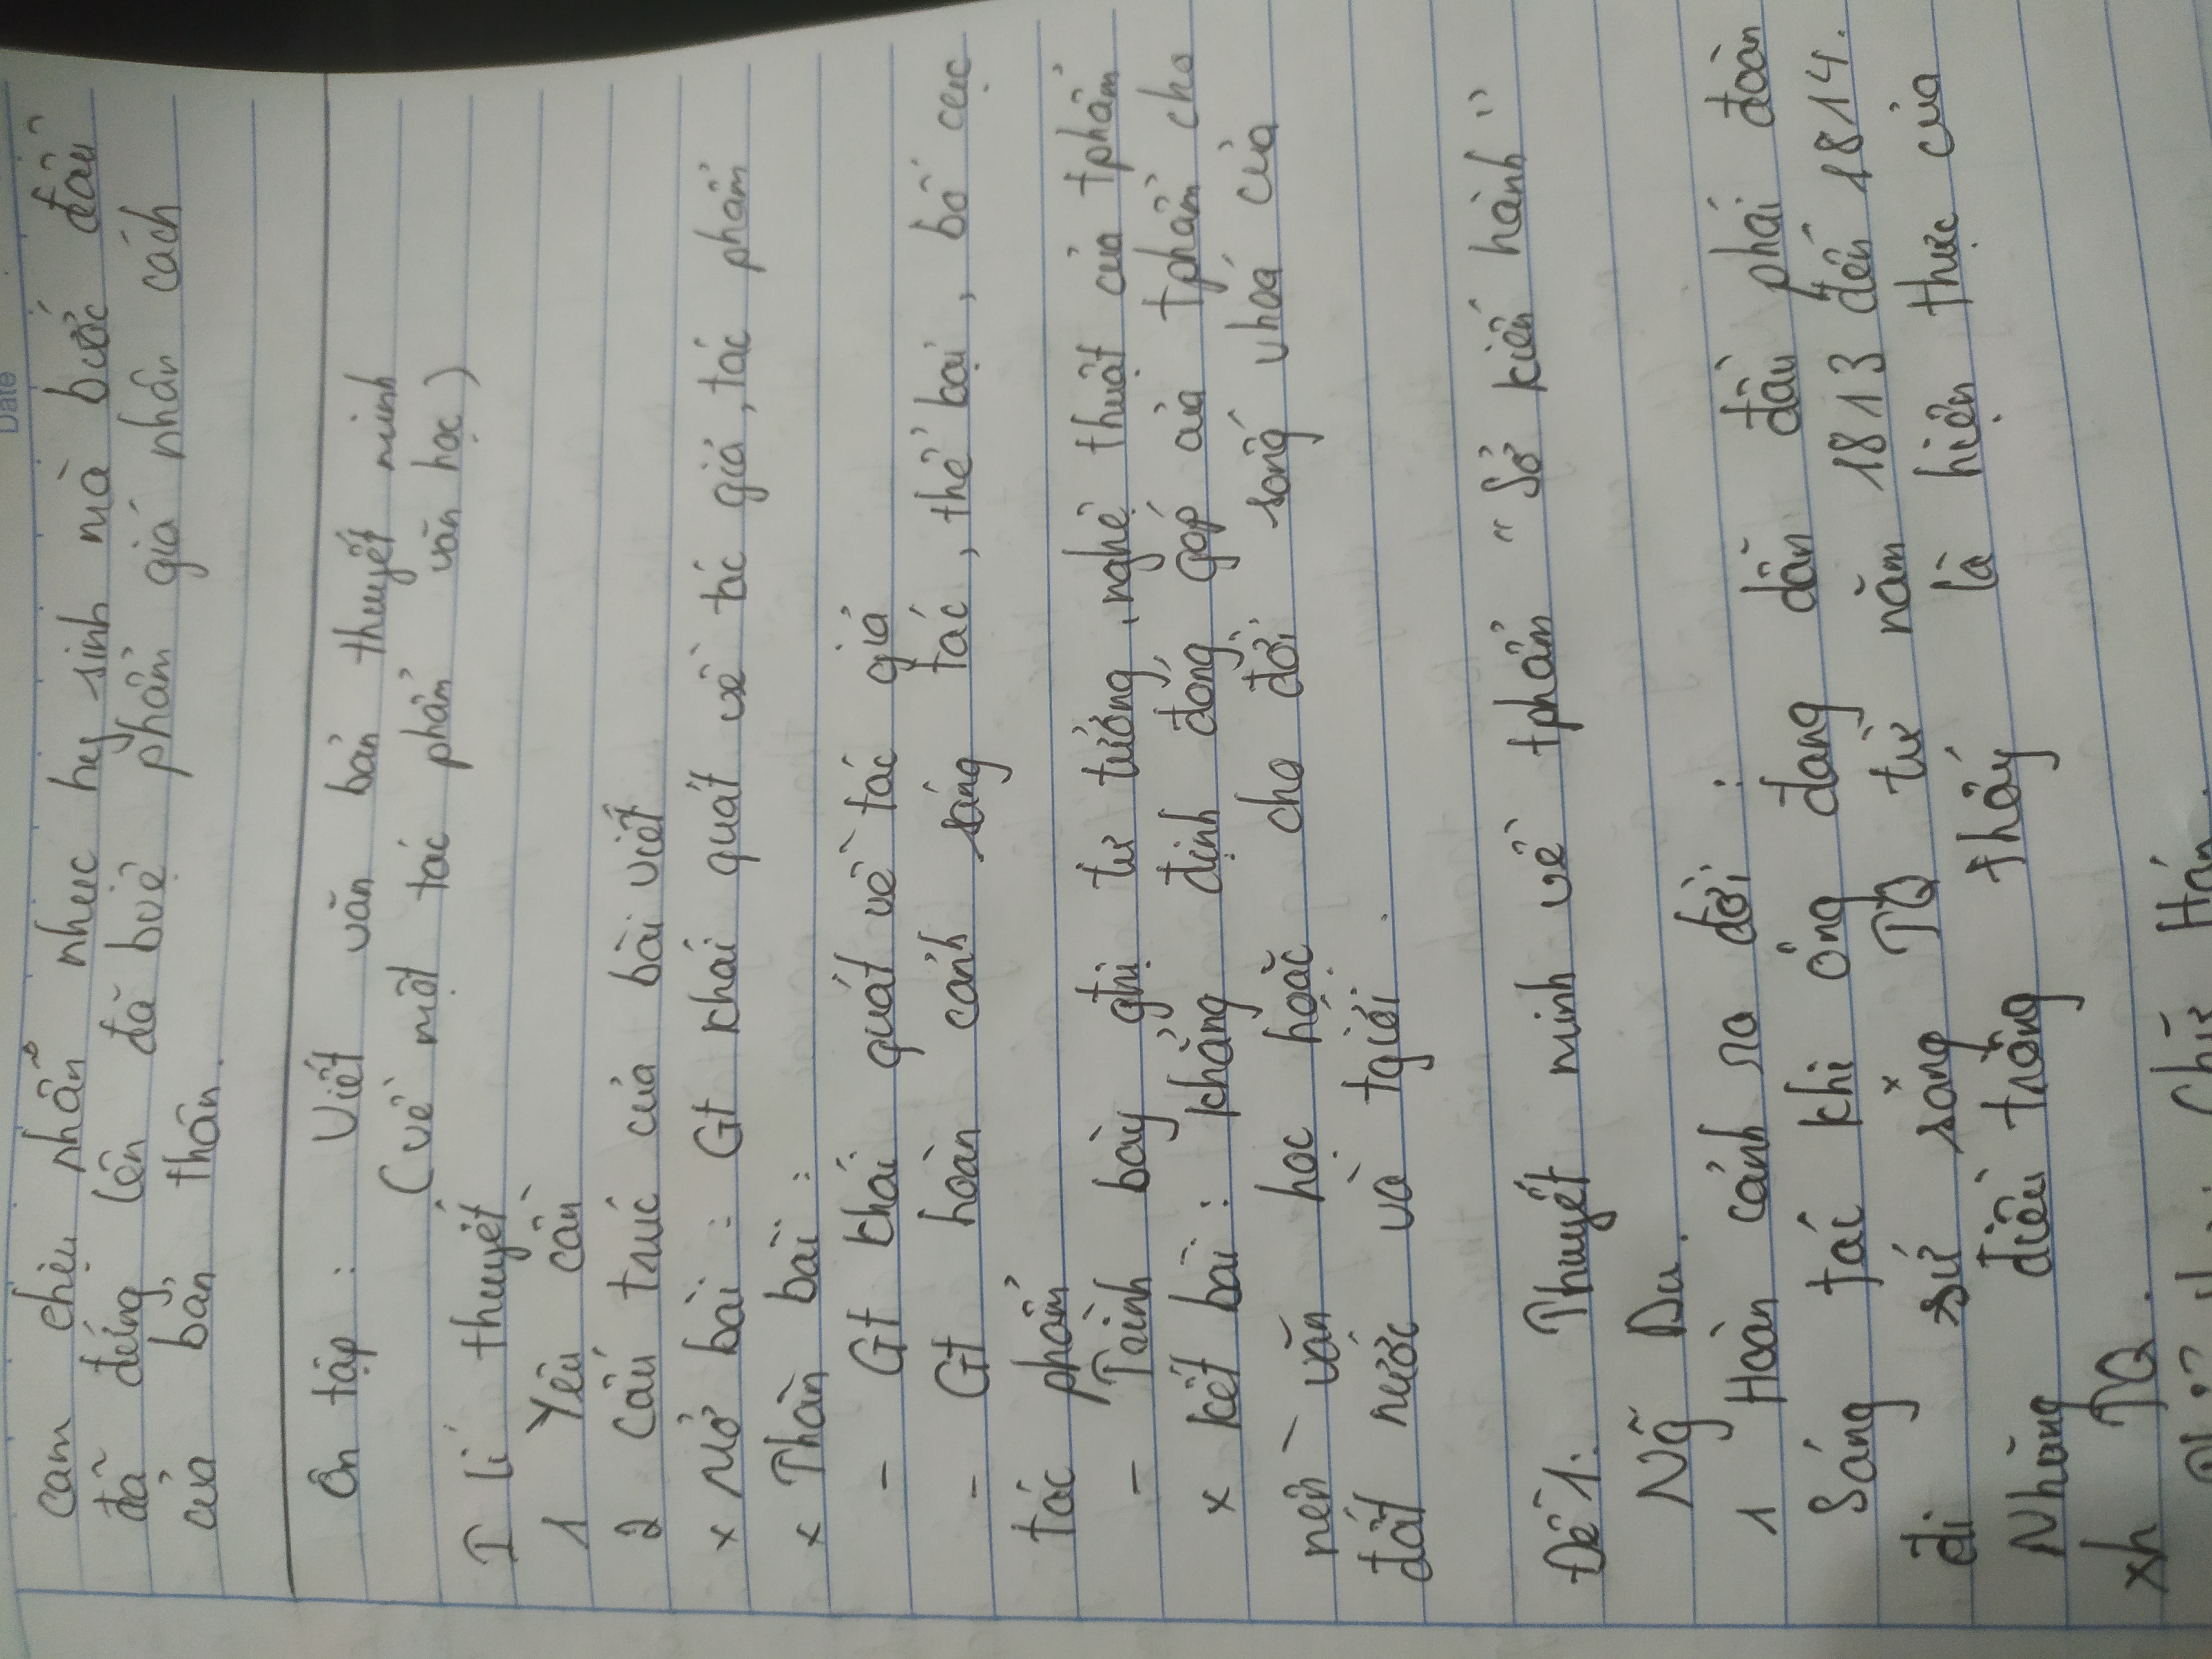 Date
cam chịu nhẫn nhục hy sinh mà bước đầu
đã đứng lên đã bvệ phẩm giá nhân cách
của bản thân.
Ôn tập : Viết văn bản thuyết minh
(về một tác phẩm văn học)
I lí thuyết
1 Yêu cầu
2 Cấu trúc của bài viết
x Mở bài : Gt khái quát về tác giả, tác phẩm
x Thân bài :
- Gt khái quát về tác giả
- Gt hoàn cảnh sáng tác, thể loại, bố cục
tác phẩm
- Trình bày gtrị tư tưởng, nghệ thuật của tphẩm
x kết bài : khẳng định đóng góp của tphẩm cho
nền văn học hoặc cho đời sống vhoá của
đất nước và tgiới.
Đề 1: Thuyết minh về tphẩm " Sở kiến hành "
Ng̃ Du.
1 Hoàn cảnh ra đời :
Sáng tác khi ông đang dẫn đầu phái đoàn
đi sứ sang TQ từ năm 1813 đến 1814.
Những điều trông thấy là hiện thực của
xh TQ.
Chữ Hán.